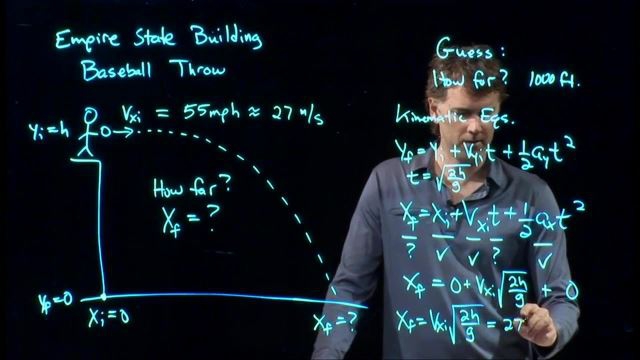 Empire State Building
Baseball Throw
Vxi = 55mph ≈ 27 m/s
yi=h
How far?
Xf = ?
yf=0
Xi=0
Xf=?
Guess:
How far? 1000 ft.
Kinematic Eqs.
Yf = Yi + Vyi t + ½ ay t²
t = √(2h/g)
Xf = Xi + Vxi t + ½ ax t²
? ✓ ✓ ? ✓
Xf = 0 + Vxi √(2h/g) + 0
Xf = Vxi √(2h/g) = 27